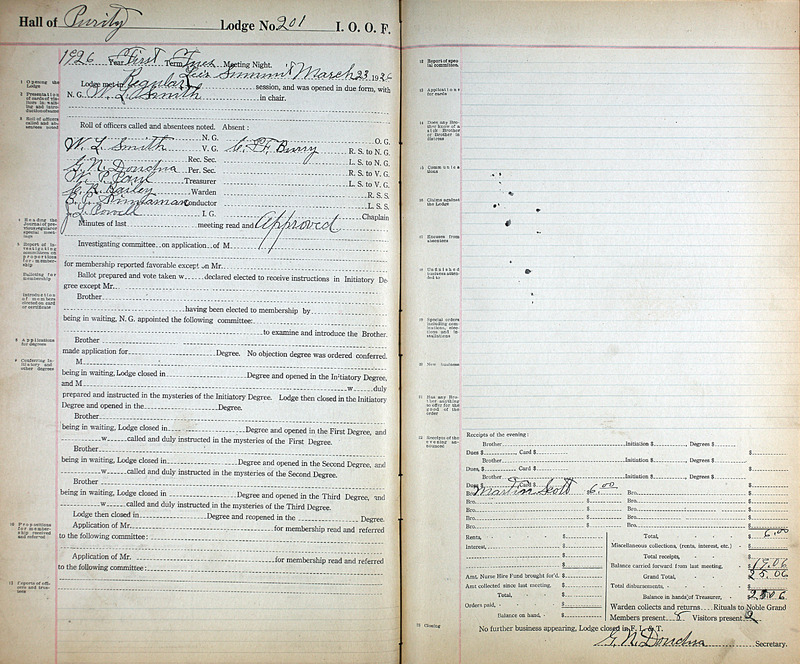 Hall of Purity Lodge No. 201 I. O. O. F.
1926 Year First Term Tues Meeting Night.
Lee's Summit March 23, 1926
Lodge met in Regular session, and was opened in due form, with
N. G. W. L. Smith in chair.
Roll of officers called and absentees noted. Absent:
N. G. O. G.
W. L. Smith V. G. R. S. to N. G.
Rec. Sec. L. S. to N. G.
G. N. Doudna Per. Sec. R. S. to V. G.
Treasurer L. S. to V. G.
Warden R. S. S.
Conductor L. S. S.
J. L. Powell I. G. Chaplain
Minutes of last meeting read and Approved
Investigating committee on application of M
for membership reported favorable except on Mr.
Ballot prepared and vote taken w declared elected to receive instructions in Initiatory De-
gree except Mr.
Brother
having been elected to membership by
being in waiting, N. G. appointed the following committee:
to examine and introduce the Brother.
Brother
made application for Degree. No objection degree was ordered conferred.
M
being in waiting, Lodge closed in Degree and opened in the Initiatory Degree,
and M w duly
prepared and instructed in the mysteries of the Initiatory Degree. Lodge then closed in the Initiatory
Degree and opened in the Degree.
Brother
being in waiting, Lodge closed in Degree and opened in the First Degree, and
w called and duly instructed in the mysteries of the First Degree.
Brother
being in waiting, Lodge closed in Degree and opened in the Second Degree, and
w called and duly instructed in the mysteries of the Second Degree.
Brother
being in waiting, Lodge closed in Degree and opened in the Third Degree, and
w called and duly instructed in the mysteries of the Third Degree.
Lodge then closed in Degree and reopened in the Degree.
Application of Mr. for membership read and referred
to the following committee:
Application of Mr. for membership read and referred
to the following committee:
1 Opening the Lodge
8 Applications for degrees
9 Conferring Initiatory and other degrees
10 Propositions for membership received and referred
11 Reports of officers and trustees
Report of special committee.
Applications for cards
Does any Brother know of a sick Brother or Brother in distress
Communications
Claims against the Lodge
Excuses from absentees
Unfinished business
New business
Has any Brother anything to offer for the good of the order
Receipts of the evening announced
Closing
Receipts of the evening:
Brother Initiation $ , Degrees $
Dues $ Card $ $
Brother Initiation $ , Degrees $
Dues, $ Card $ $
Brother Initiation $ , Degrees $
Dues $ Card $ $
Bro. Martin Scott $ 6.00 Bro. $
Bro. $ Bro. $
Bro. $ Bro. $
Bro. $ Bro. $
Rents, $ Total, $ 6.00
Interest, $ Miscellaneous collections, (rents, interest, etc.) $
$ Total receipts, $
Balance carried forward from last meeting, 19.06
Amt. Nurse Hire Fund brought for'd. $ Grand Total, 25.06
Amt collected since last meeting, $ Total disbursements, $
Total, $ Balance in hands of Treasurer, 25.06
Orders paid, $ Warden collects and returns Rituals to Noble Grand
Balance on hand, $ Members present 8 Visitors present 2
No further business appearing, Lodge closed in F. L. & T.
G. N. Doudna Secretary.